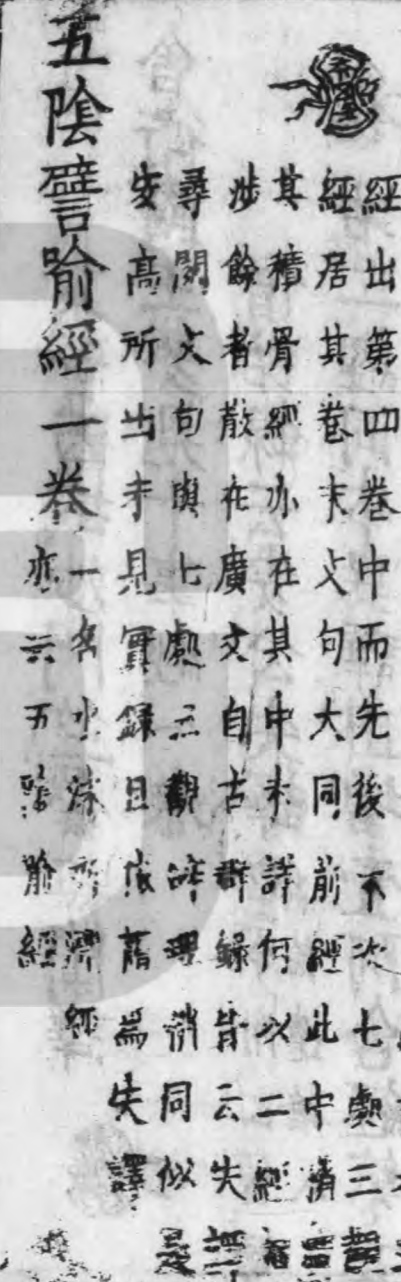 經出第四卷中而先後不次七處三
經居其卷末文句大同前經此中
其積骨經亦在其中未詳何以二經
涉餘者散在廣文自古群錄皆云失
尋閱文句與七處三觀辞理消同似
安高所出未見實錄且依舊為失譯
五陰譬喻經一卷
一名水沫所漂經
亦云五陰喻經